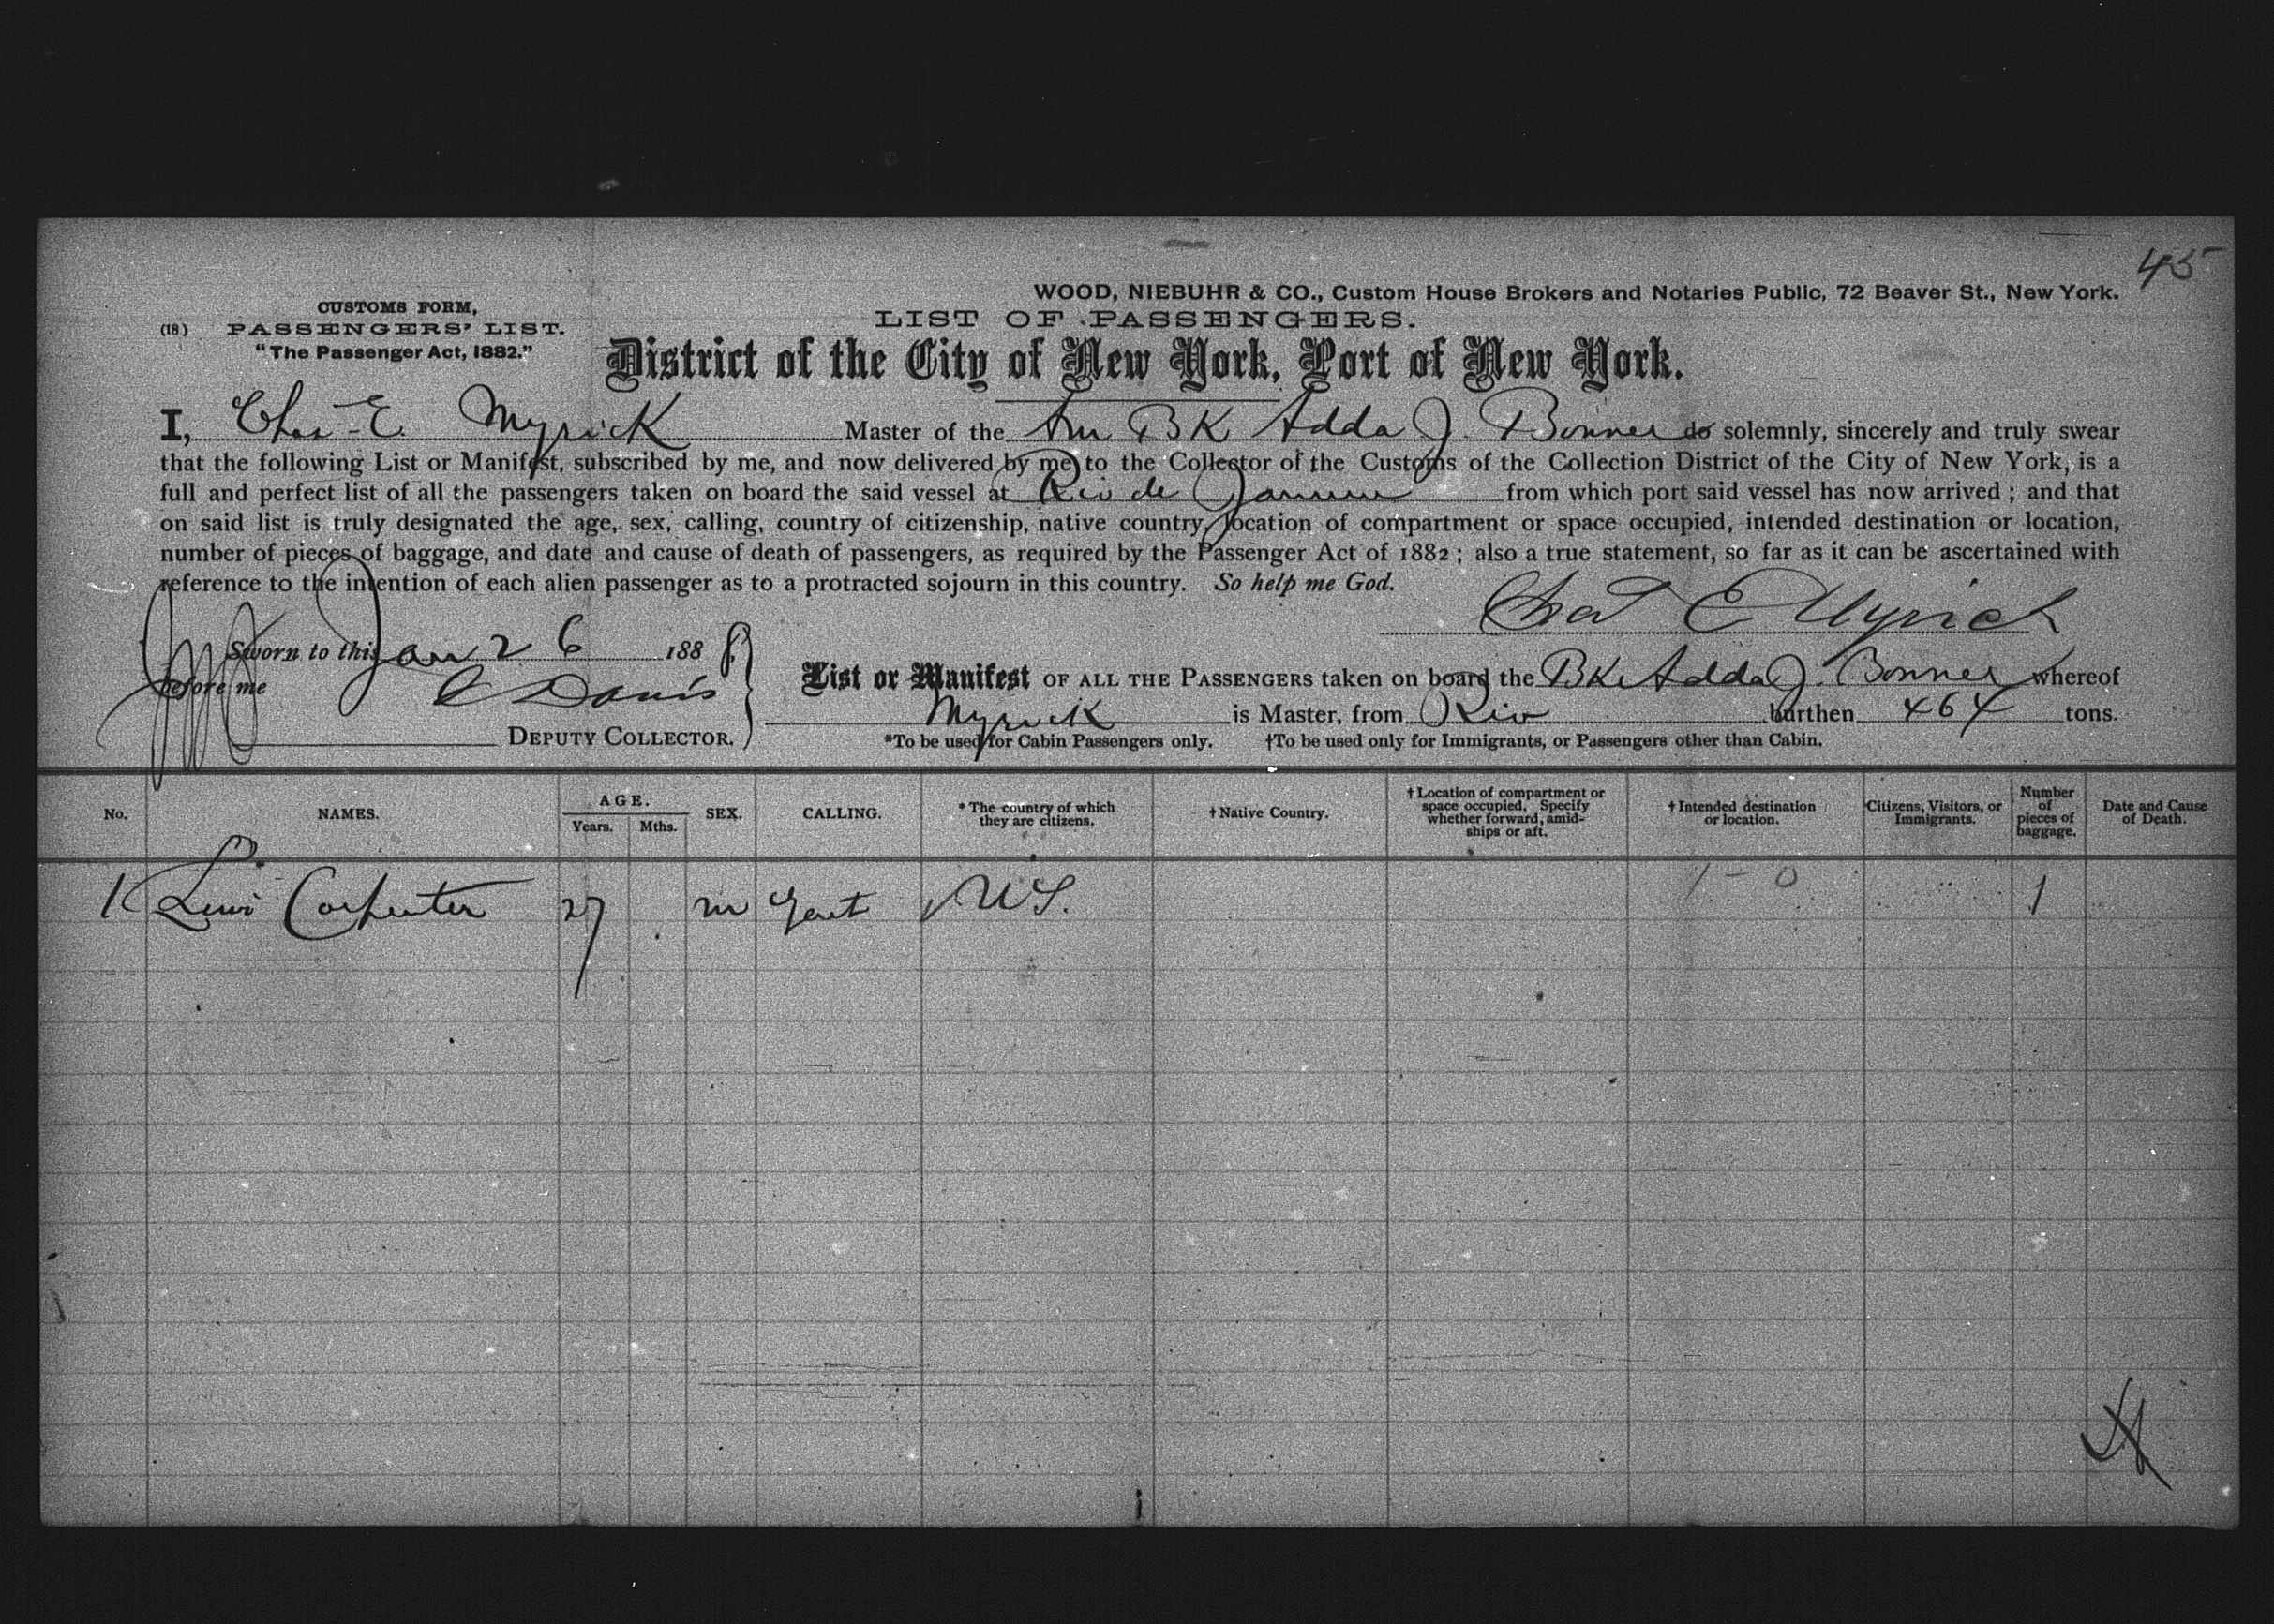 45
WOOD, NIEBUHR & CO., Custom House Brokers and Notaries Public, 72 Beaver St., New York.
CUSTOMS FORM,
(18) PASSENGERS' LIST.
"The Passenger Act, 1882."
LIST OF PASSENGERS.
District of the City of New York, Port of New York.
I, Chas. E. Myrick Master of the Am BK Adda J. Bonner do solemnly, sincerely and truly swear
that the following List or Manifest, subscribed by me, and now delivered by me to the Collector of the Customs of the Collection District of the City of New York, is a
full and perfect list of all the passengers taken on board the said vessel at Rio de Janeiro from which port said vessel has now arrived; and that
on said list is truly designated the age, sex, calling, country of citizenship, native country, location of compartment or space occupied, intended destination or location,
number of pieces of baggage, and date and cause of death of passengers, as required by the Passenger Act of 1882; also a true statement, so far as it can be ascertained with
reference to the intention of each alien passenger as to a protracted sojourn in this country. So help me God.
Chas E Myrick
Sworn to this Jan 26 1888
before me C Davis
DEPUTY COLLECTOR.
List or Manifest OF ALL THE PASSENGERS taken on board the BK Adda J. Bonner whereof
Myrick is Master, from Rio burthen 464 tons.
*To be used for Cabin Passengers only. †To be used only for Immigrants, or Passengers other than Cabin.
No. NAMES. AGE. Years. Mths. SEX. CALLING. *The country of which they are citizens. †Native Country. †Location of compartment or space occupied. Specify whether forward, amidships or aft. †Intended destination or location. Citizens, Visitors, or Immigrants. Number of pieces of baggage. Date and Cause of Death.
1-0
1 Carpenter 27 m Gent U S. 1